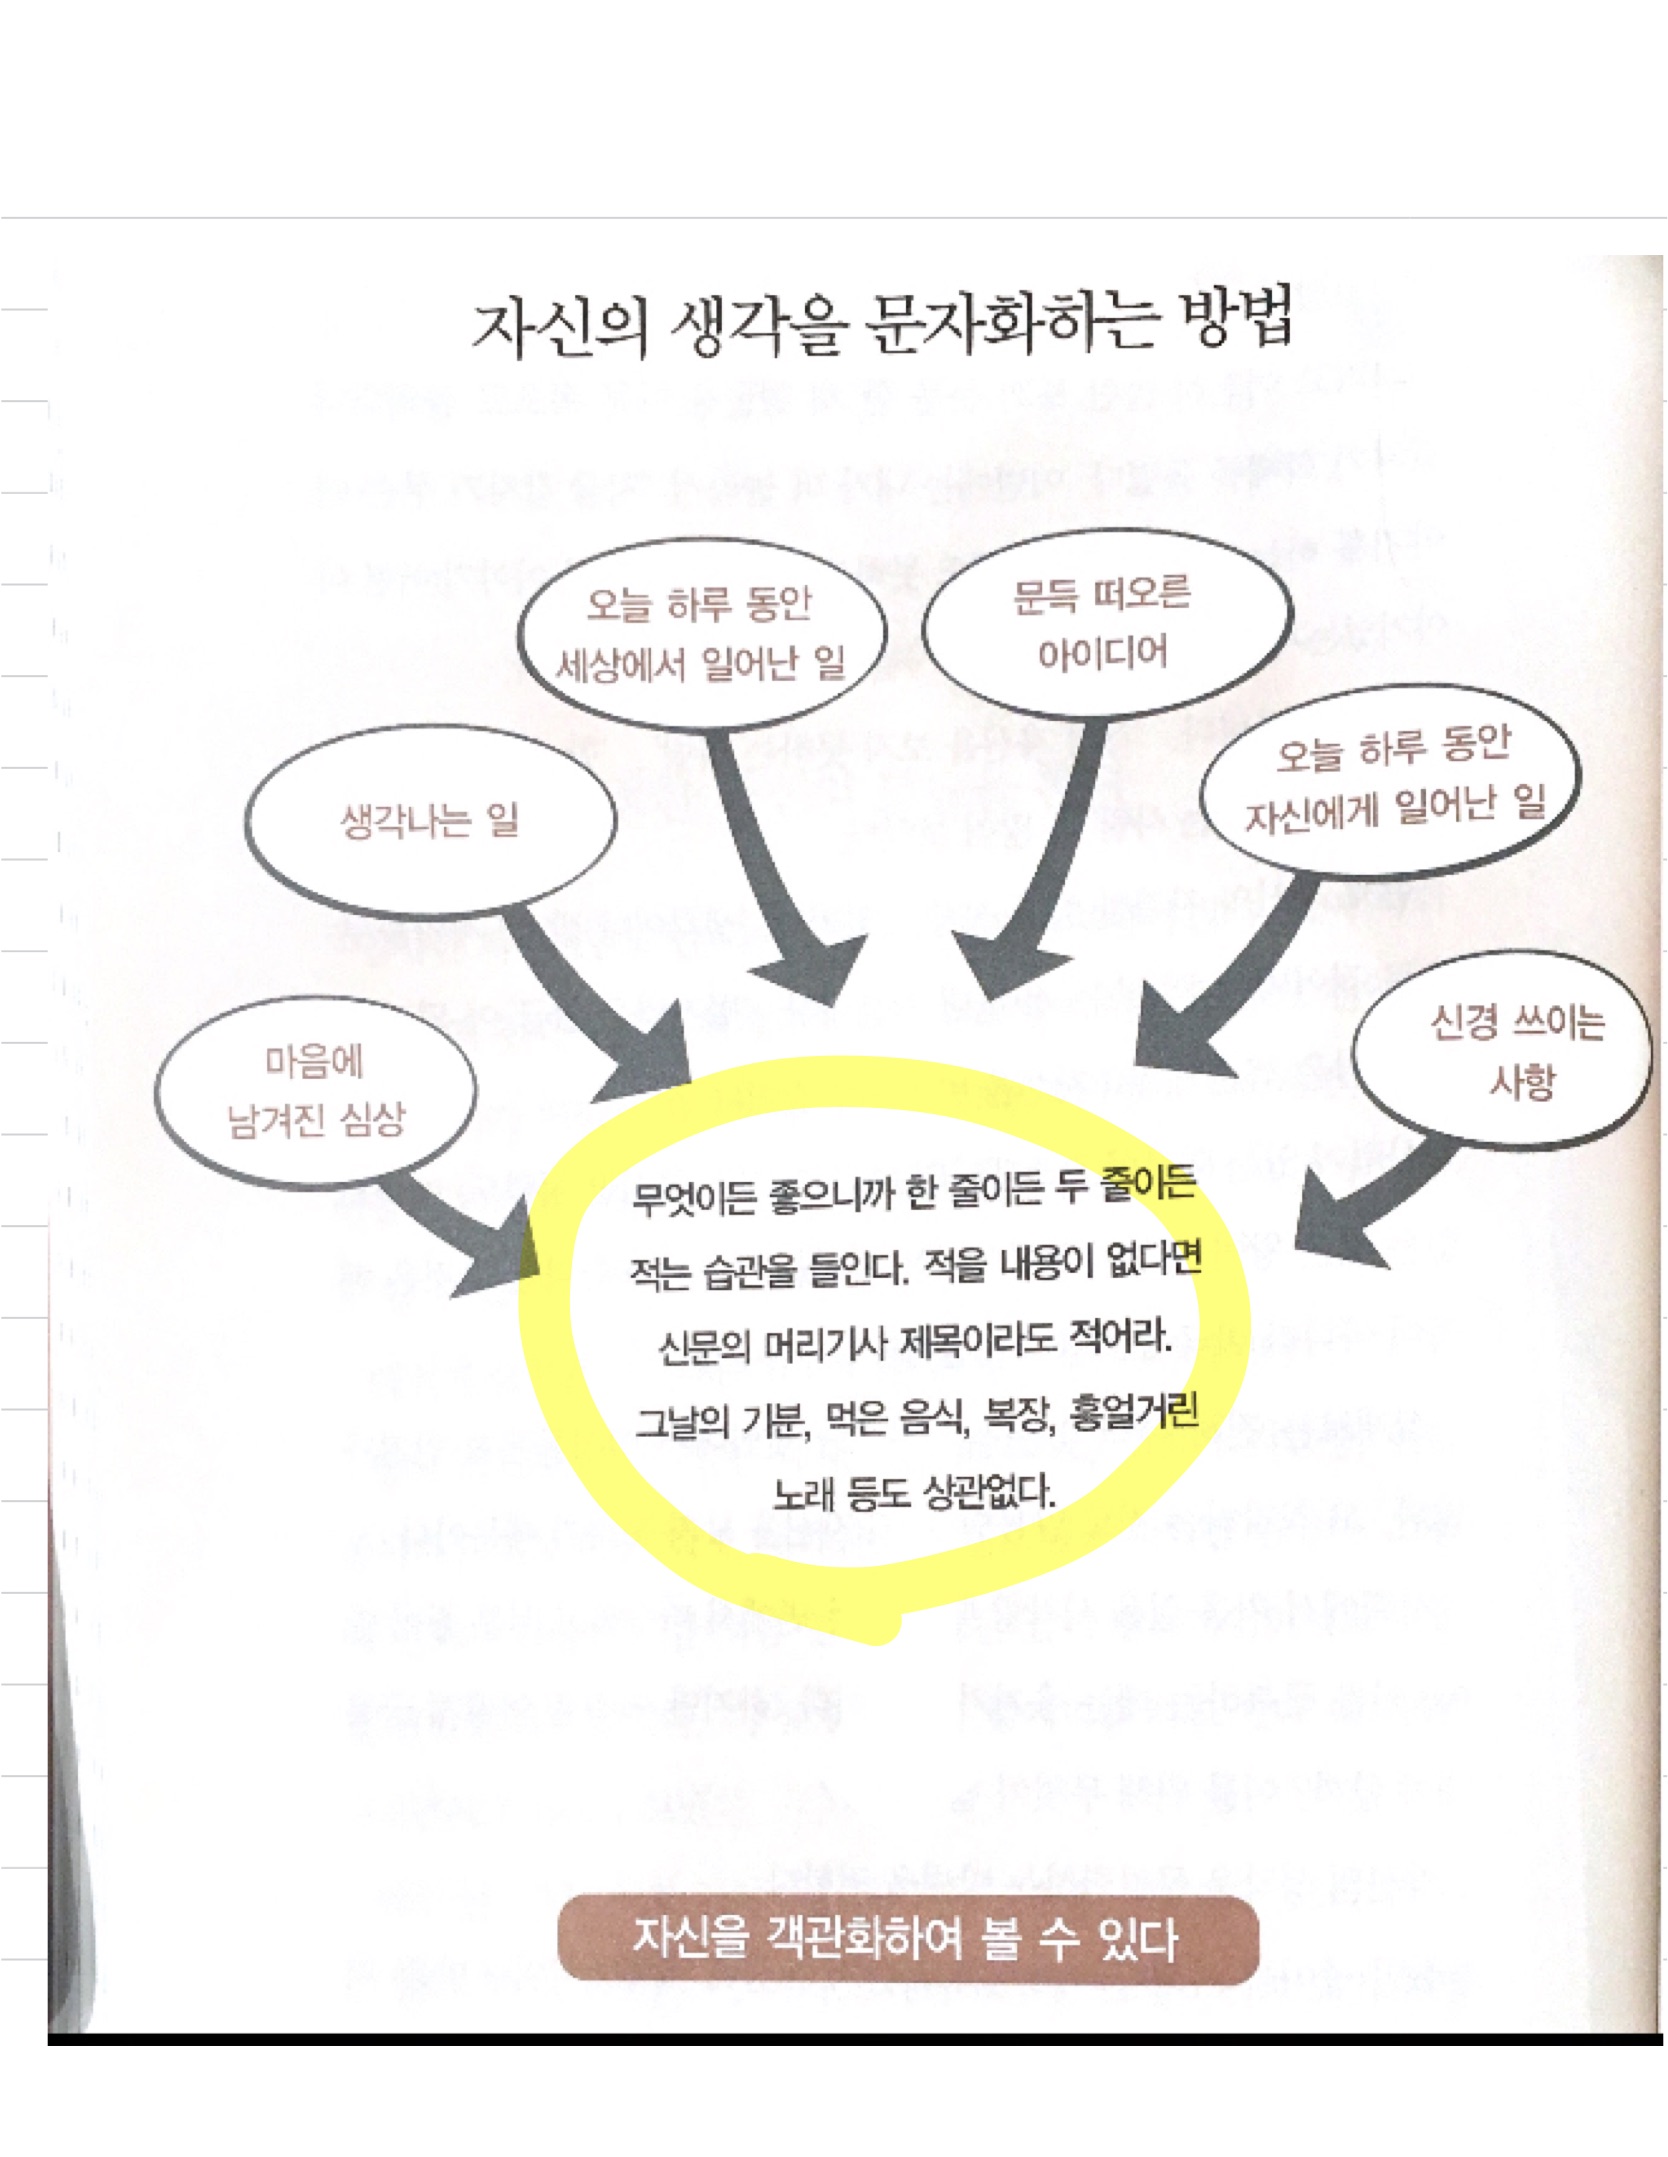 자신의 생각을 문자화하는 방법
오늘 하루 동안
세상에서 일어난 일
문득 떠오른
아이디어
생각나는 일
오늘 하루 동안
자신에게 일어난 일
마음에
남겨진 심상
신경 쓰이는
사항
무엇이든 좋으니까 한 줄이든 두 줄이든
적는 습관을 들인다. 적을 내용이 없다면
신문의 머리기사 제목이라도 적어라.
그날의 기분, 먹은 음식, 복장, 흥얼거린
노래 등도 상관없다.
자신을 객관화하여 볼 수 있다